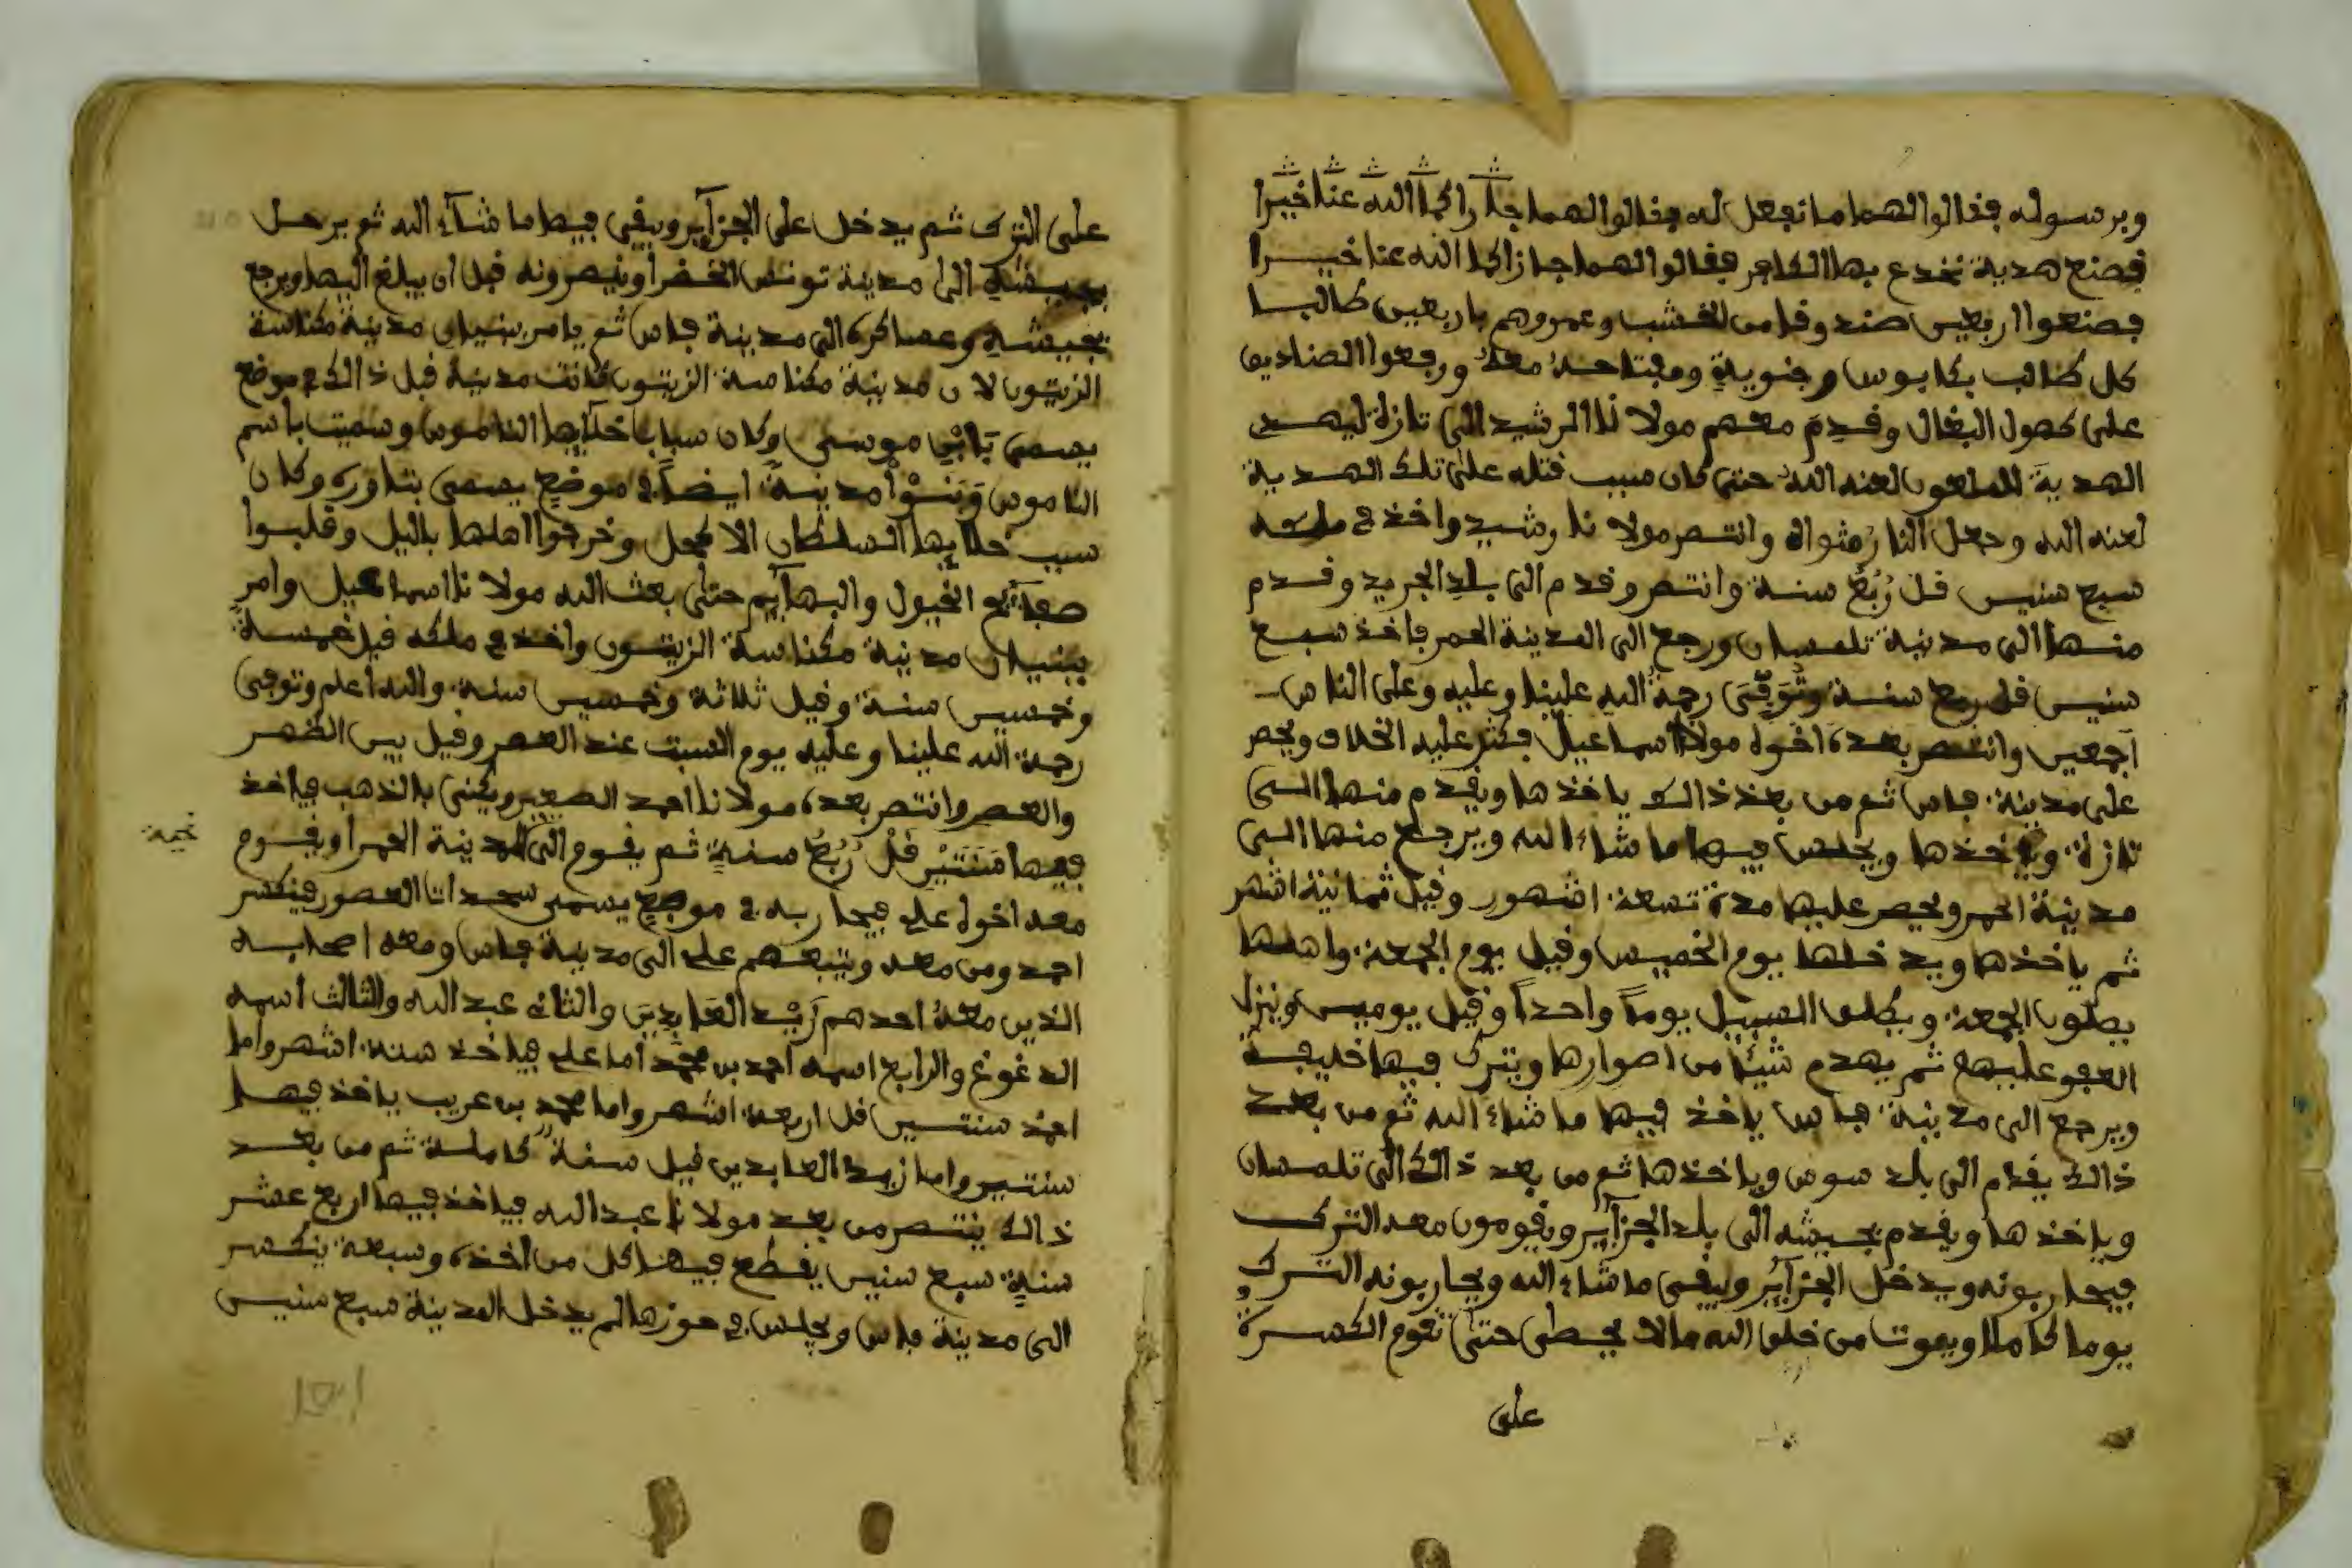 وبرسوله فقالوا لهما ما نفعل له فقالوا لهما جازاكما الله عنا خيرا
فصنع هدية نخدع بها الكافر فقالوا لهما جازاكما الله عنا خيرا
فصنعوا اربعين صندوقا من الخشب وعمروهم باربعين طالبا
كل طالب بكابوس وجنوية ومفتاحه معه ورفعوا الصناديق
على كهول البغال وقدم معهم مولانا الرشيد الى تازة ليهدى
الهدية للملعون لعنه الله حتى كان سبب قتله على تلك الهدية
لعنه الله وجعل النار مثواه وانتصر مولانا رشيد واخذ في ملكه
سبع سنين قل ربع سنة وانتصر وقدم الى بلد الجريد وقدم
منها الى مدينة تلمسان ورجع الى المدينة الحمر فاخذ سبع
سنين قل ربع سنة وتوفى رحمة الله علينا وعليه وعلى الناس
اجمعين وانتصر بعده اخوه مولا اسماعيل فكثر عليه الخلاف ويحصر
على مدينة فاس ثم من بعد ذالك ياخذها ويقدم منها الى
تازة وياخذها ويجلس فيها ما شاء الله ويرجع منها الى
مدينة الحمر ويحصر عليها مدة تسعة اشهور وقيل ثمانية اشهر
ثم ياخذها ويدخلها يوم الخميس وقيل يوم الجمعة واهلها
يصلون الجمعة ويطلق السبيل يوما واحدا وقيل يومين وينزل
العفو عليهم ثم يهدم شيئا من اصوارها ويترك فيها خليفة
ويرجع الى مدينة فاس ياخذ فيها ما شاء الله ثم من بعد
ذالك يقدم الى بلد سوس وياخذها ثم من بعد ذالك الى تلمسان
وياخذها ويقدم بجيشه الى بلد الجزآير ويقومون معه الترك
فيحاربونه ويدخل الجزآير ويبقى ما شاء الله ويحاربونه الترك
يوما كاملا ويموت من خلق الله مالا يحطى حتى تقوم الكسرة
على
على الترك ثم يدخل على الجزآير ويبقى فيها ما شآء الله ثم يرحل
بجيشه الى مدينة تونس الخضرا وينصرونه قبل ان يبلغ اليها ويرجع
بجيشه وعساكره الى مدينة فاس ثم يامر ببنيان مدينة مكناسة
الزيتون لان مدينة مكناسة الزيتون كانت مدينة قبل ذالك في موضع
يسمى بابي موسى وكان سباب خلآيها الناموس وسميت باسم
الناموس وبنوا مدينة ايضا في موضع يسمى بتاورة وكان
سبب خلايها السلطان الاكحل وخرجوا اهلها باليل وقلبوا
صفآئح الخيول والبهآيم حتى بعث الله مولانا اسماعيل وامر
ببنيان مدينة مكناسة الزيتون واخذ في ملكه قيل خمسة
وخمسين سنة وقيل ثلاثة وخمسين سنة والله اعلم وتوفى
رحمة الله علينا وعليه يوم السبت عند العصر وقيل بين الظهر
والعصر وانتصر بعده مولانا احمد الصغير ويكنى بالذهب فياخذ
فيها سنتين قل ربع سنة ثم يقوم الى المدينة الحمرا ويقوم
معه اخوه على فيحاربه في موضع يسمى العصور فينكسر
احمد ومن معه ويتبعهم على الى مدينة فاس ومعه اصحابه
الذين معه احدهم زيد العابدين والثانى عبد الله والثالث اسمه
الدغوغ والرابع اسمه احمد بن محمد اما على فياخذ سنة اشهر واما
احمد سنتين قل اربعة اشهر واما محمد بن عريب ياخذ فيها
سنتين واما زيد العابدين قيل سنة كاملة ثم من بعد
ذالك ينتصر من بعد مولانا عبد الله فياخذ فيها اربع عشر
سنة سبع سنين يقطع فيها كل من اخذه وسبعة ينكسر
الى مدينة فاس ويجلس في حوزها لم يدخل المدينة سبع سنين